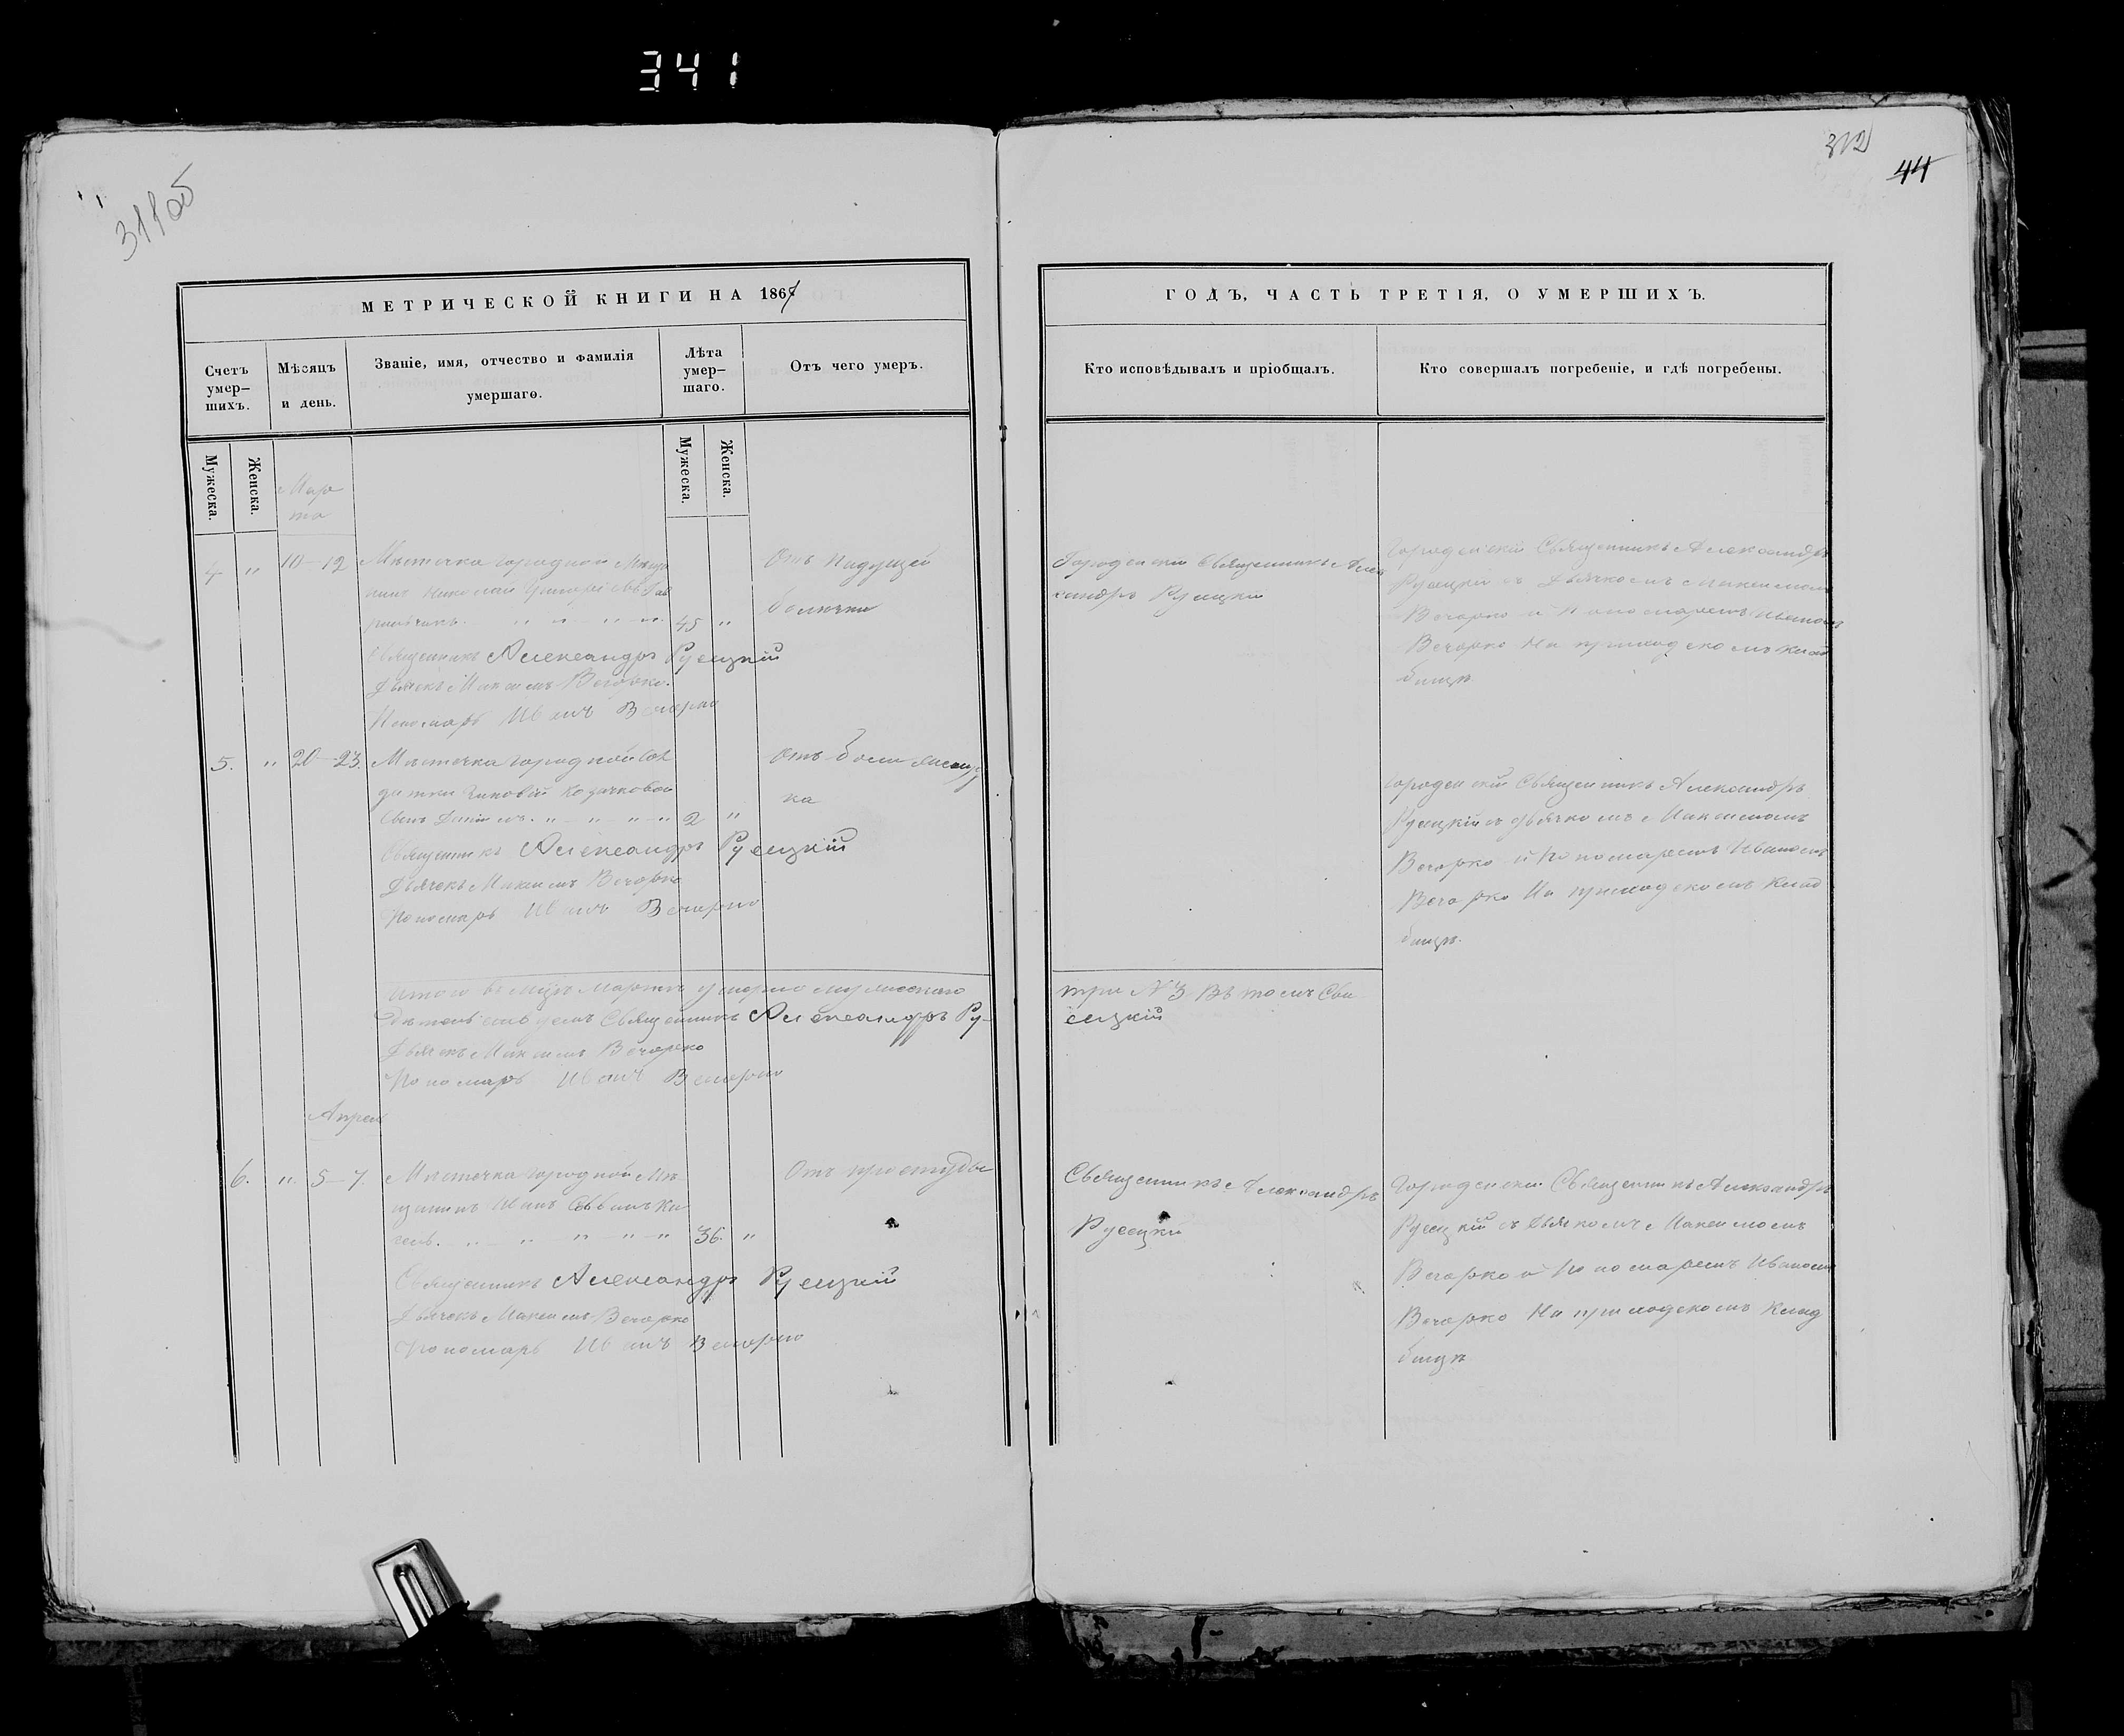 341
311об
312
44
МЕТРИЧЕСКОЙ КНИГИ НА 186
ГОДЪ, ЧАСТЬ ТРЕТІЯ, О УМЕРШИХЪ.
Счетъ умер-
шихъ.
Мѣсяцъ
и день.
Званіе, имя, отчество и фамилія
умершаго.
Лѣта
умер-
шаго.
Отъ чего умеръ.
Кто исповѣдывалъ и пріобщалъ.
Кто совершалъ погребеніе, и гдѣ погребены.
Мужеска.
Женска.
Мужеска.
Женска.
Мар
та
4 " 10-12 Мѣстечка Городной Мѣща
нинъ Николай Григоріевъ
45 "
Отъ падущей
болячки
Священникъ Александръ Русецкій
Дьячекъ Максимъ Вечорко.
Пономарь Иванъ Вечорко
Городенскій Священникъ Алек
сандръ Русецкій
Городенскій Священникъ Александръ
Русецкій съ Дьячкомъ Максимомъ
Вечорко и Пономаремъ Иваномъ
Вечорко На приходскомъ клад
бищѣ.
5. " 20-23. Мѣстечка Городной
сынъ 2 "
Отъ боли
ка
Священникъ Александръ Русецкій
Дьячекъ Максимъ Вечорко
Пономарь Иванъ Вечорко
Городенскій Священникъ Александръ
Русецкій съ Дьячкомъ Максимомъ
Вечорко и Пономаремъ Иваномъ
Вечорко На приходскомъ клад
бищѣ.
Итого въ мцѣ Мартѣ умерло мужескаго три № 3. Въ томъ Сви
дѣтельствуемъ Священникъ Александръ Ру-
сецкій
Дьячекъ Максимъ Вечорко
Пономарь Иванъ Вечорко
Апрель
6. " 5-7. Мѣстечка Городной Мѣ
щанинъ Иванъ
36. "
Отъ простуды
Священникъ Александръ Русецкій
Дьячекъ Максимъ Вечорко
Пономарь Иванъ Вечорко
Священникъ Александръ
Русецкій
Городенскій Священникъ Александръ
Русецкій съ Дьячкомъ Максимомъ
Вечорко и Пономаремъ Иваномъ
Вечорко На приходскомъ клад
бищѣ